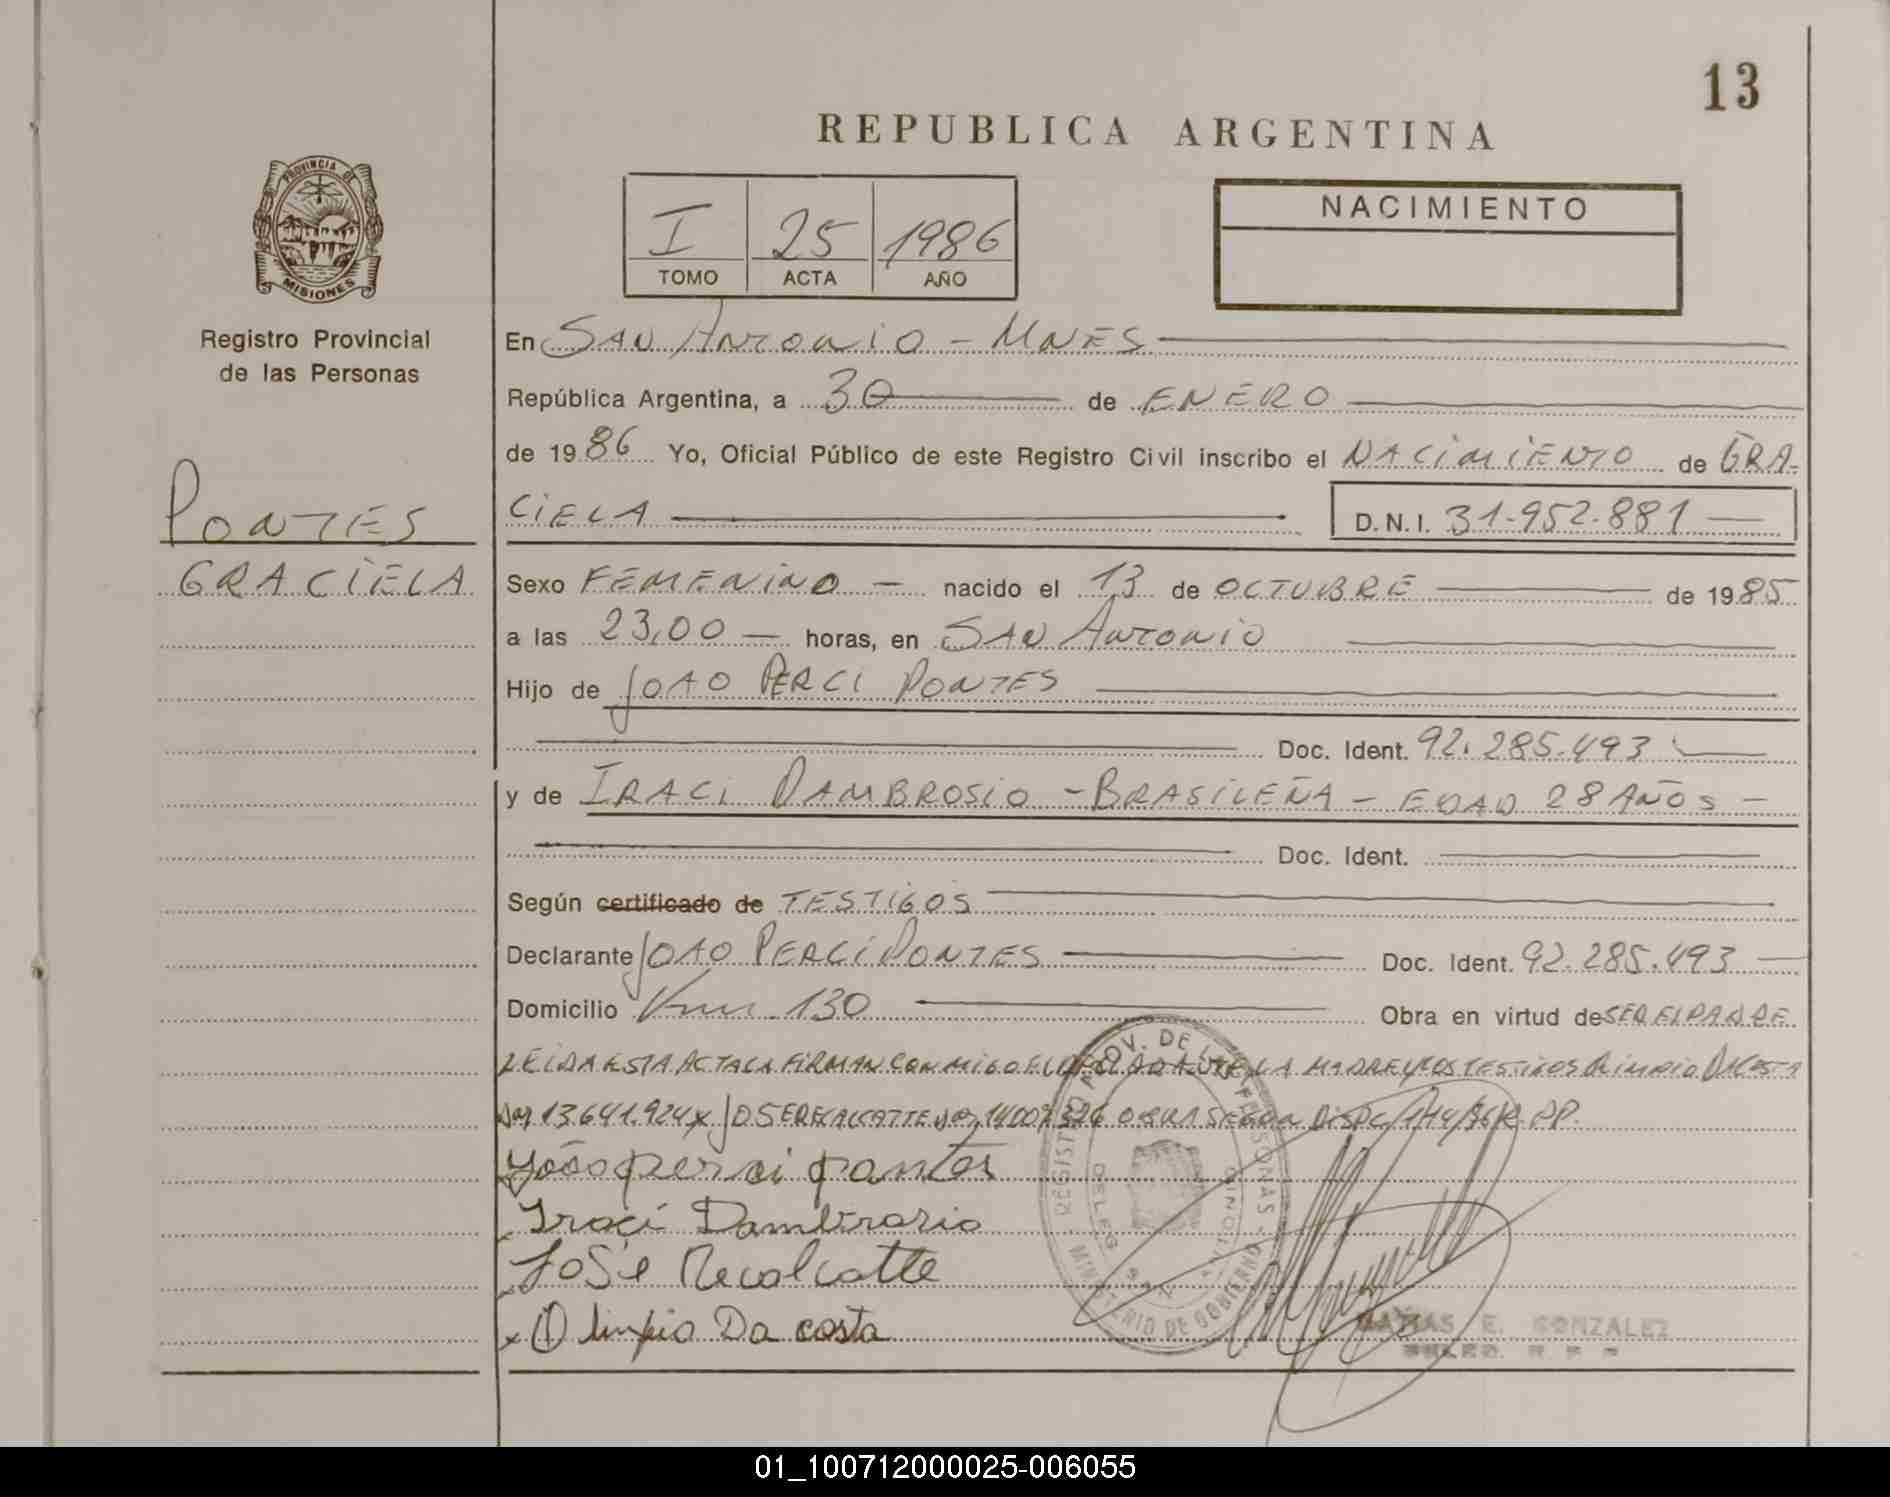 13
REPUBLICA ARGENTINA
PROVINCIA DE
MISIONES
Registro Provincial
de las Personas
I 25 1986
TOMO ACTA AÑO
NACIMIENTO
En SAN ANTONIO - MNES
República Argentina, a 30 de ENERO
de 1986 Yo, Oficial Público de este Registro Civil inscribo el NACIMIENTO de GRA-
CIELA D.N.I. 31.952.881
PONTES
GRACIELA
Sexo FEMENINO - nacido el 13 de OCTUBRE de 1985
a las 23,00 - horas, en SAN ANTONIO
Hijo de JOAO PERCI PONTES
Doc. Ident. 92.285.493
y de IRACI DAMBROSIO - BRASILEÑA - EDAD 28 AÑOS -
Doc. Ident.
Según certificado de TESTIGOS
Declarante JOAO PERCI PONTES Doc. Ident. 92.285.493
Domicilio Km. 130 Obra en virtud de SER EL PADRE
LEIDA ESTA ACTA LA FIRMAN CONMIGO EL LA MADRE Y LOS TESTIGOS OLIMPIO DACOSTA
13.641.924 JOSE RECALCATTE OBRA SEGUN
João perci pontes
Iraci Dambrosio
José Recalcatte
x Olimpio Da costa
REGISTRO PROV. DE LAS PERSONAS
MINISTERIO DE GOBIERNO
MATIAS E. GONZALEZ
01_100712000025-006055